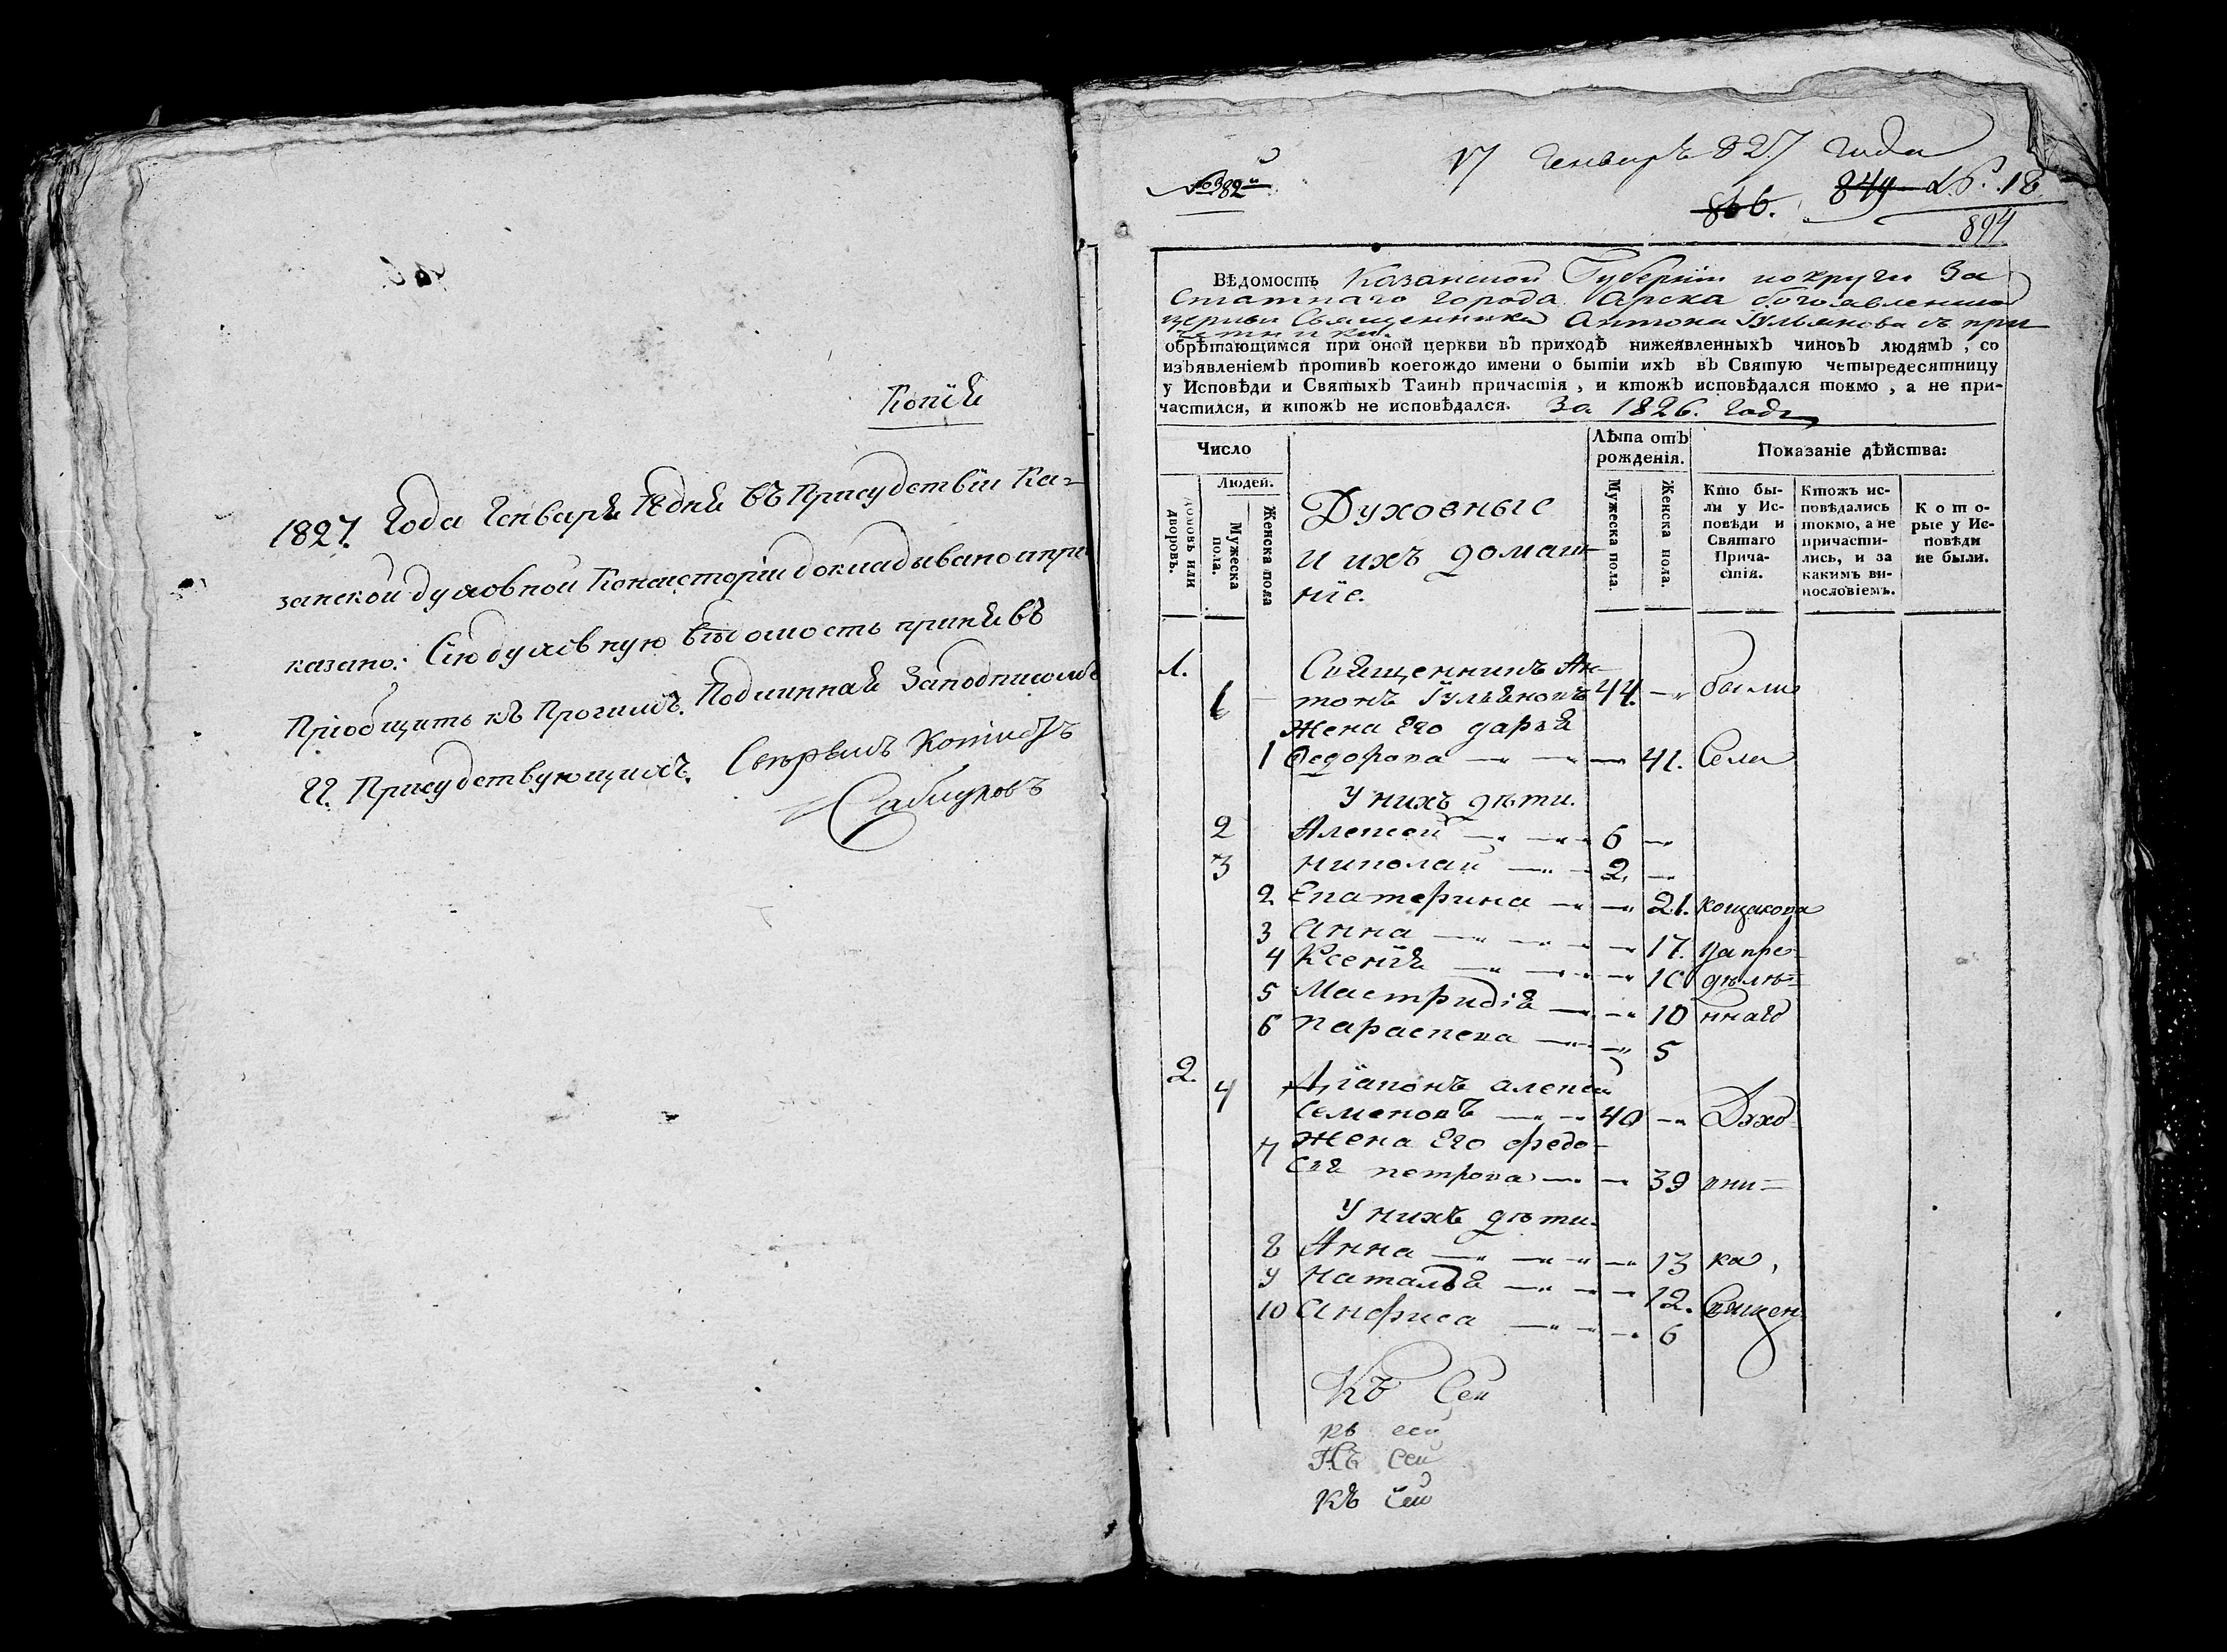 Копія
1827. Года Генваря 18 дня въ Присудствіи Ка=
занской духовной Консисторіи докладывано и при
казано: Сію духовную вѣдомость принявъ
Пріобщить къ Прочимъ. Подлинная За подписомъ
Гг. Присудствующихъ.
№ 382й
17 Генварь 827 года
866. 849 18
894
Вѣдомость Казанской Губерніи и округи За
Статнаго города Арска богоявленской
церкви Священника Антона Iульянова съ при
четники
обрѣтающимся при оной церкви въ приходѣ нижеявленныхъ чиновъ людямъ, со
изъявленіемъ противъ коегождо имени о бытіи ихъ въ Святую четыредесятницу
у Исповѣди и Святыхъ Таинъ причастія, и ктожъ исповѣдался токмо, а не при-
частился, и ктожъ не исповѣдался. За 1826. Годъ
Число
Людей.
домовъ или дворовъ.
Мужеска пола.
Женска пола
Духовные
и ихъ домаш-
ніе.
Лѣта отъ рожденія.
Мужеска пола.
Женска пола.
Показаніе дѣйства:
Кто бы-
ли у Ис-
повѣди и
Святаго
Прича-
стія.
Ктожъ ис-
повѣдались
токмо, а не
причасти-
лись, и за
какимъ ви-
нословіемъ.
Кото-
рые у Ис-
повѣди
не были.
1. Священникъ Ан-
1 тонъ Iульяновъ 44. были
Жена Его дарья
1 Федорова 41. Села
У нихъ дѣти.
2 Алексей 6
3 николай 2
2. Екатерина 21. кощакова
3 Анна 17. запре-
4 Ксенія 10 дѣлѣ=
5 Мастридія 10 ннаго
6 параскева 5
2. 4 Діаконъ алексей
Семеновъ 40 Духо-
7 Жена Его федо-
сія петрова 39 вни=
У нихъ дѣти.
8 Анна 13 ка,
9 Наталья 12. Священ
10 Анфиса 6
Къ Сей
къ сей
Къ Сей
къ сей